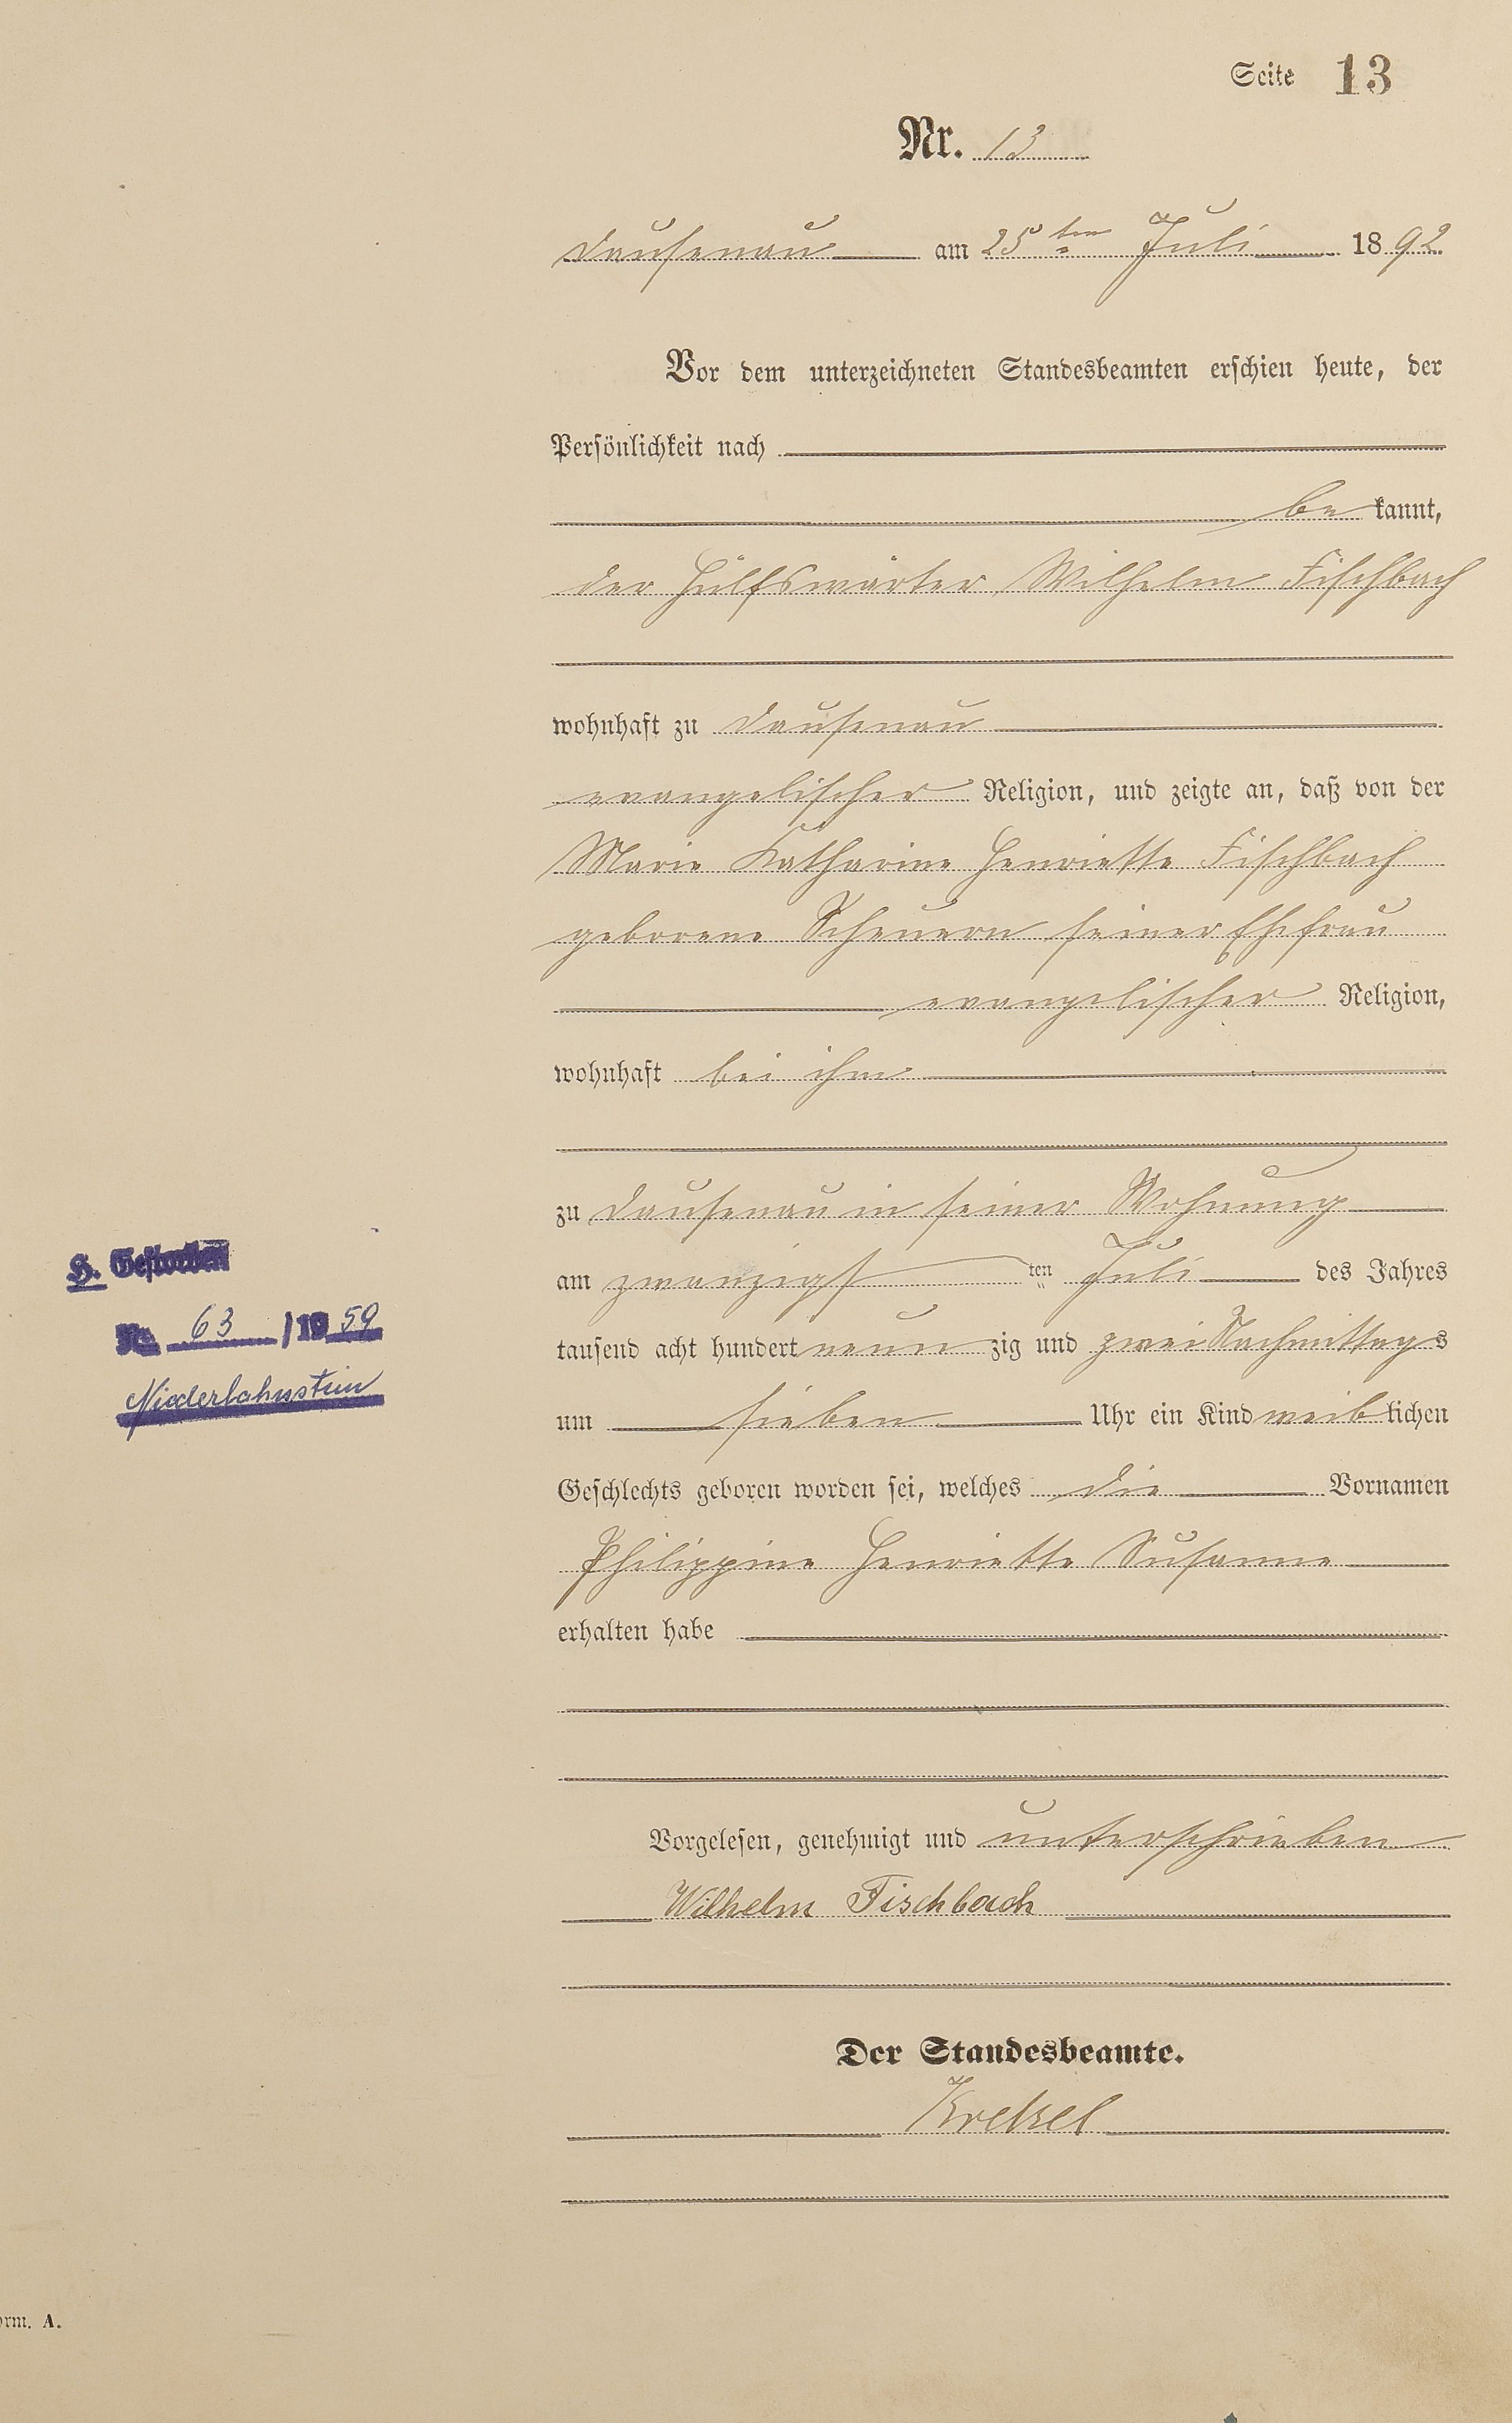 Seite 13
Nr. 13
Dausenau am 25ten Juli 1892
Vor dem unterzeichneten Standesbeamten erschien heute, der
Persönlichkeit nach
be kannt,
der Hülfswärter Wilhelm Fischbach
wohnhaft zu Dausenau
evangelischer Religion, und zeigte an, daß von der
Marie Katharine Henriette Fischbach
geborene Scheuern seiner Ehefrau
evangelischer Religion,
wohnhaft bei ihm
zu Dausenau in seiner Wohnung
am zwanzigsten Juli des Jahres
tausend acht hundert neunzig und zwei Nachmittags
um sieben Uhr ein Kind weiblichen
Geschlechts geboren worden sei, welches die Vornamen
Philippine Henriette Susanne
erhalten habe
Vorgelesen, genehmigt und unterschrieben
Wilhelm Fischbach
Der Standesbeamte.
H. Gestorben
Nr. 63 / 1959
Niederlahnstein
orm. A.